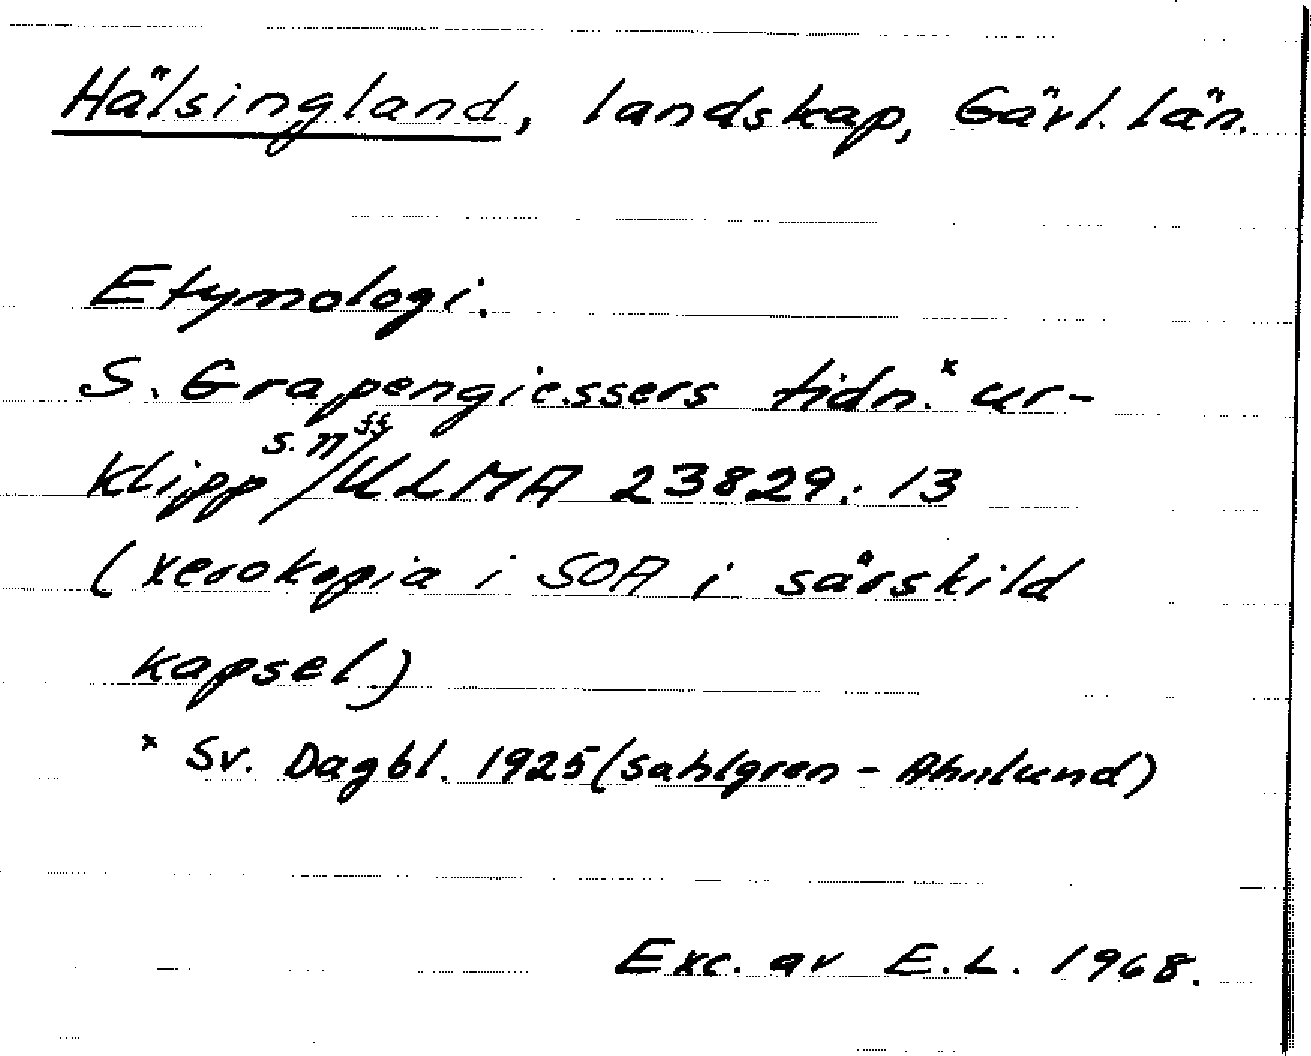 Hälsingland, landskap, Gävl. län.
Etymologi.
S. Grapengiessers tidn.x ur-
klipp s. 11 ff / ULMA 23829: 13
(xerokopia i SOA i särskild
kapsel)
x Sv. Dagbl. 1925 (Sahlgren - Ahnlund)
Exc. av E.L. 1968.